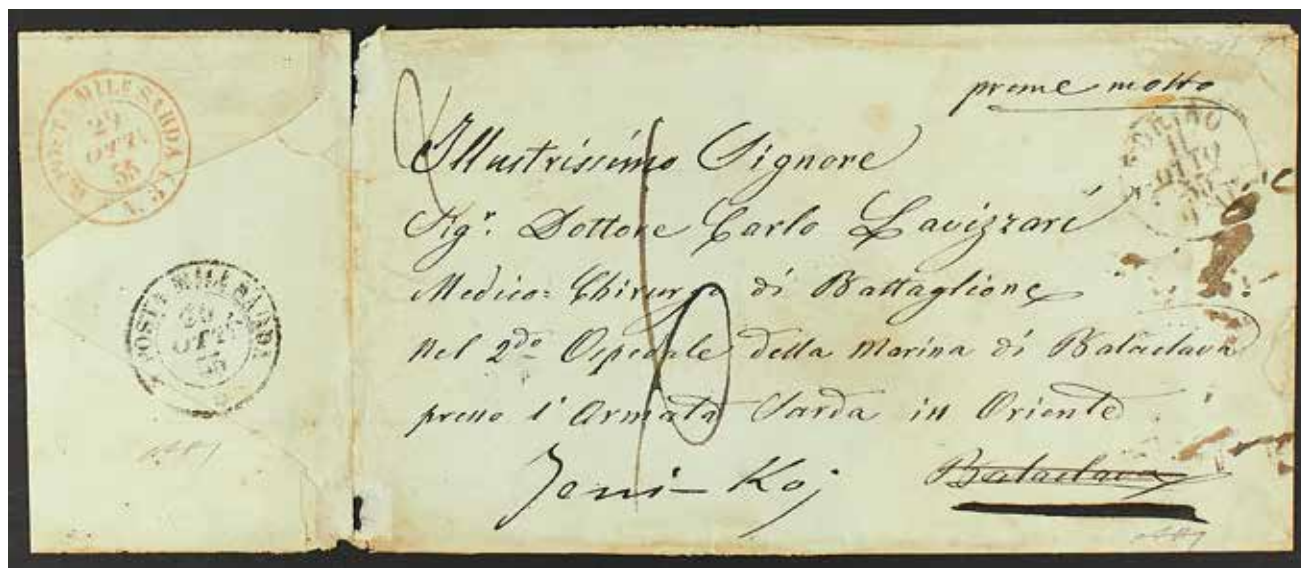 R. POSTA MILE SARDA N. 2
29
OTT.
55
POSTA MILE SARDA
29
OTT.
55
preme molto
TORINO
11
OTTO
55
Illustrissimo Signore
Sig.r Dottore Carlo Lavizzari
Medico=Chirurgo di Battaglione
nel 2do Ospedale della Marina di Balaclava
presso l'Armata Sarda in Oriente
Jeni-Koj
Balaclava